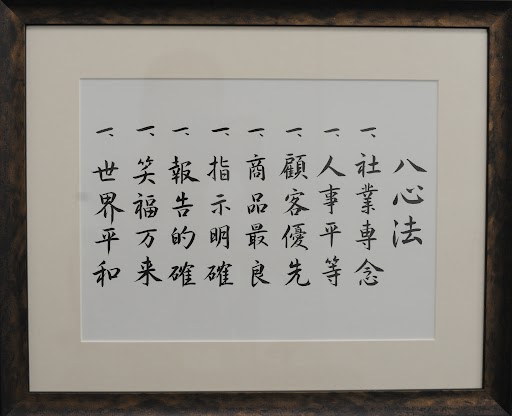 八心法
一、社業専念
一、人事平等
一、顧客優先
一、商品最良
一、指示明確
一、報告的確
一、笑福万来
一、世界平和